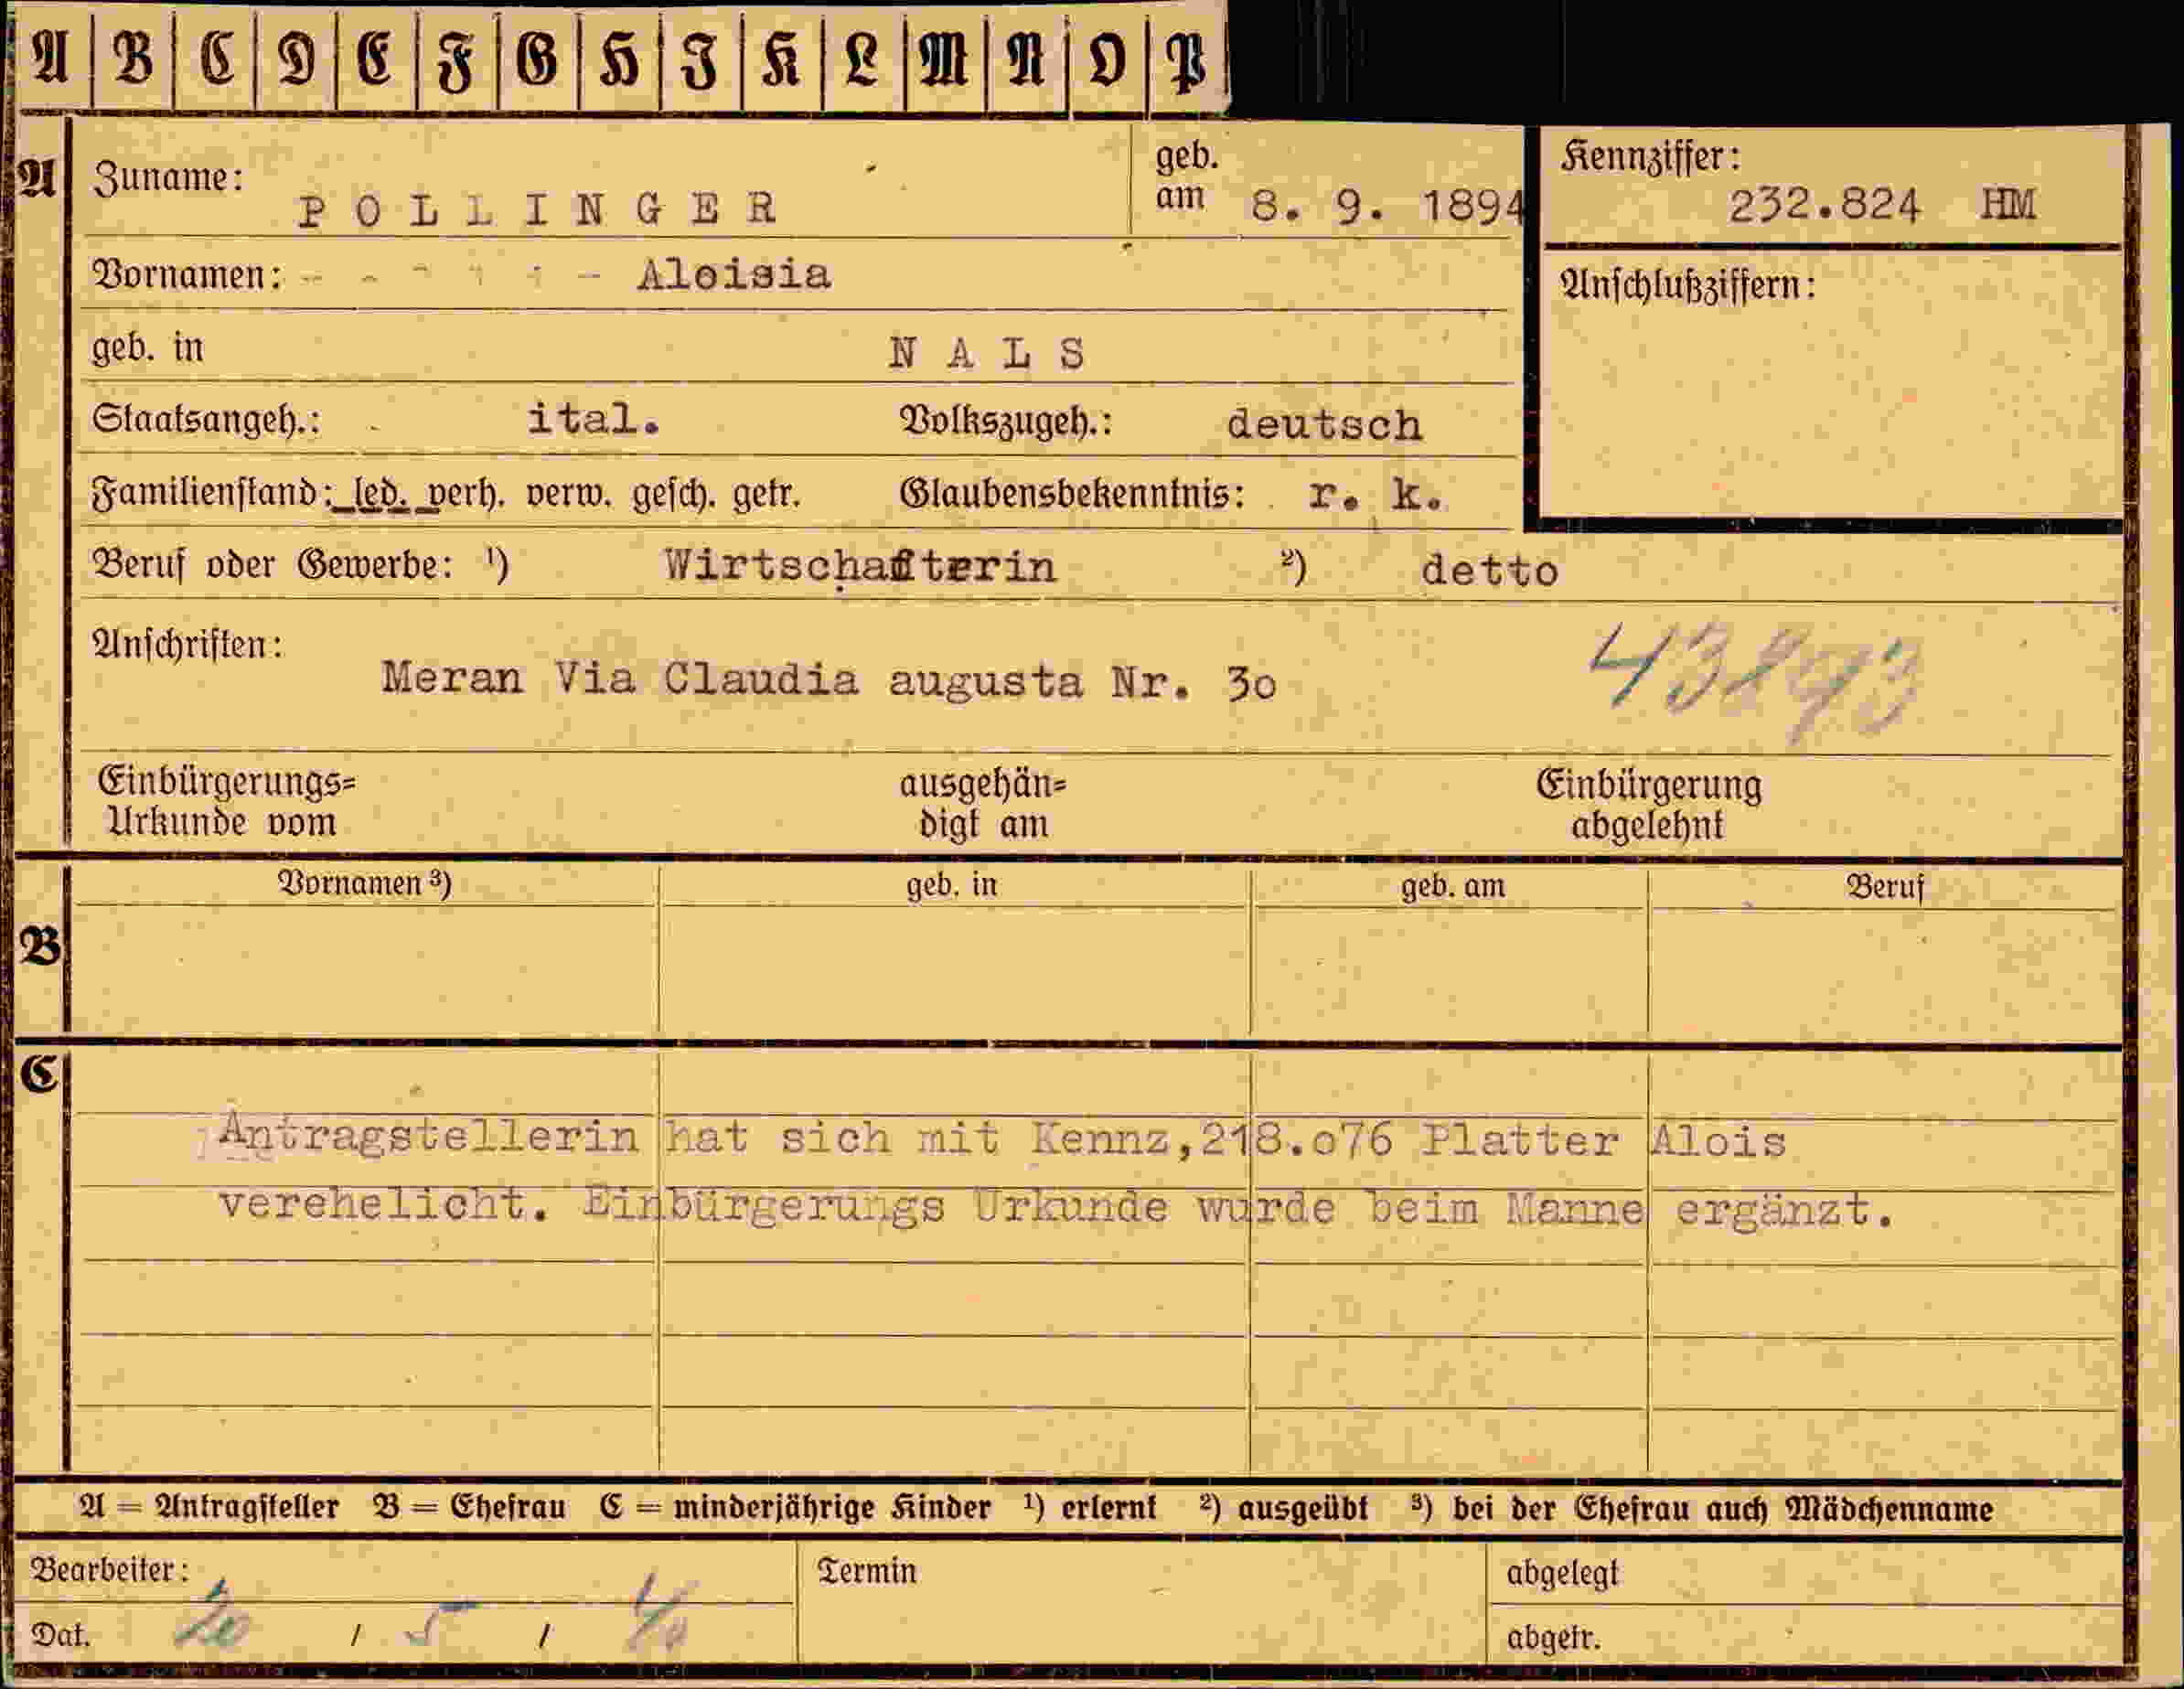 A B C D E F G H I K L M N O P
A
Zuname: POLLINGER
geb. am 8. 9. 1894
Kennziffer: 232.824 HM
Vornamen: - - - - - - Aloisia
Anschlußziffern:
geb. in NALS
Staatsangeh.: ital. Volkszugeh.: deutsch
Familienstand: led. verh. verw. gesch. getr. Glaubensbekenntnis: r. k.
Beruf oder Gewerbe: ¹) Wirtschafterin ²) detto
Anschriften: Meran Via Claudia augusta Nr. 3o
43893
Einbürgerungs= Urkunde vom
ausgehän= digt am
Einbürgerung abgelehnt
B
Vornamen ³) geb. in geb. am Beruf
C
Antragstellerin hat sich mit Kennz,218.o76 Platter Alois
verehelicht. Einbürgerungs Urkunde wurde beim Manne ergänzt.
A = Antragsteller B = Ehefrau C = minderjährige Kinder ¹) erlernt ²) ausgeübt ³) bei der Ehefrau auch Mädchenname
Bearbeiter: Termin abgelegt
Dat. 20 / 5 / 40 abgetr.